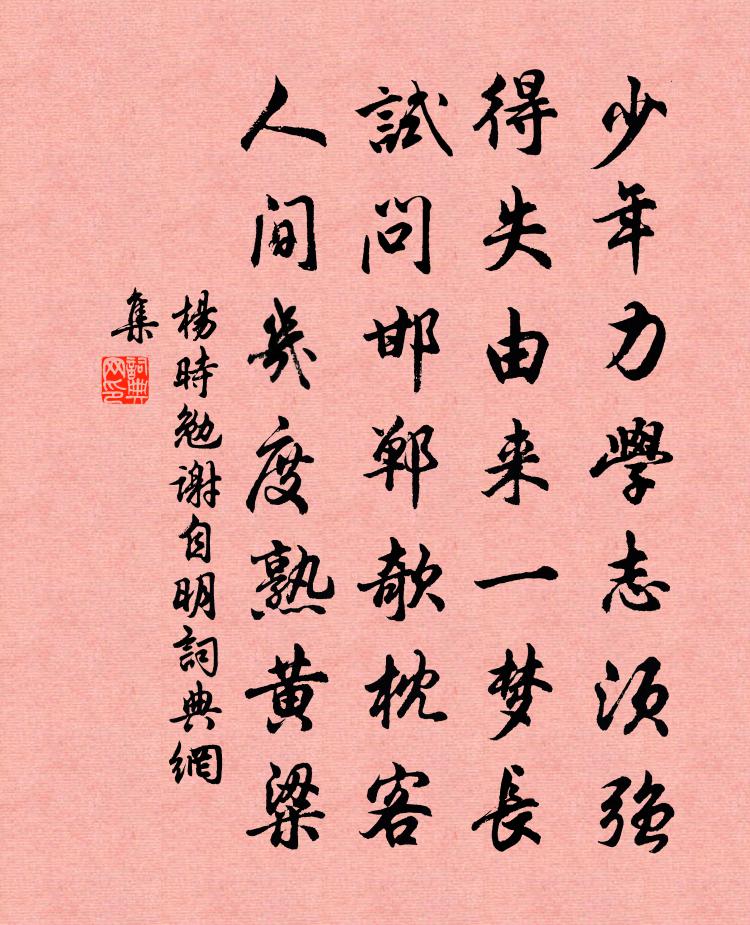 少年力學志須強
得失由来一梦長
試問邯鄲欹枕客
人间幾度熟黄粱
楊時勉谢自明詞典網
集
詞典
网印